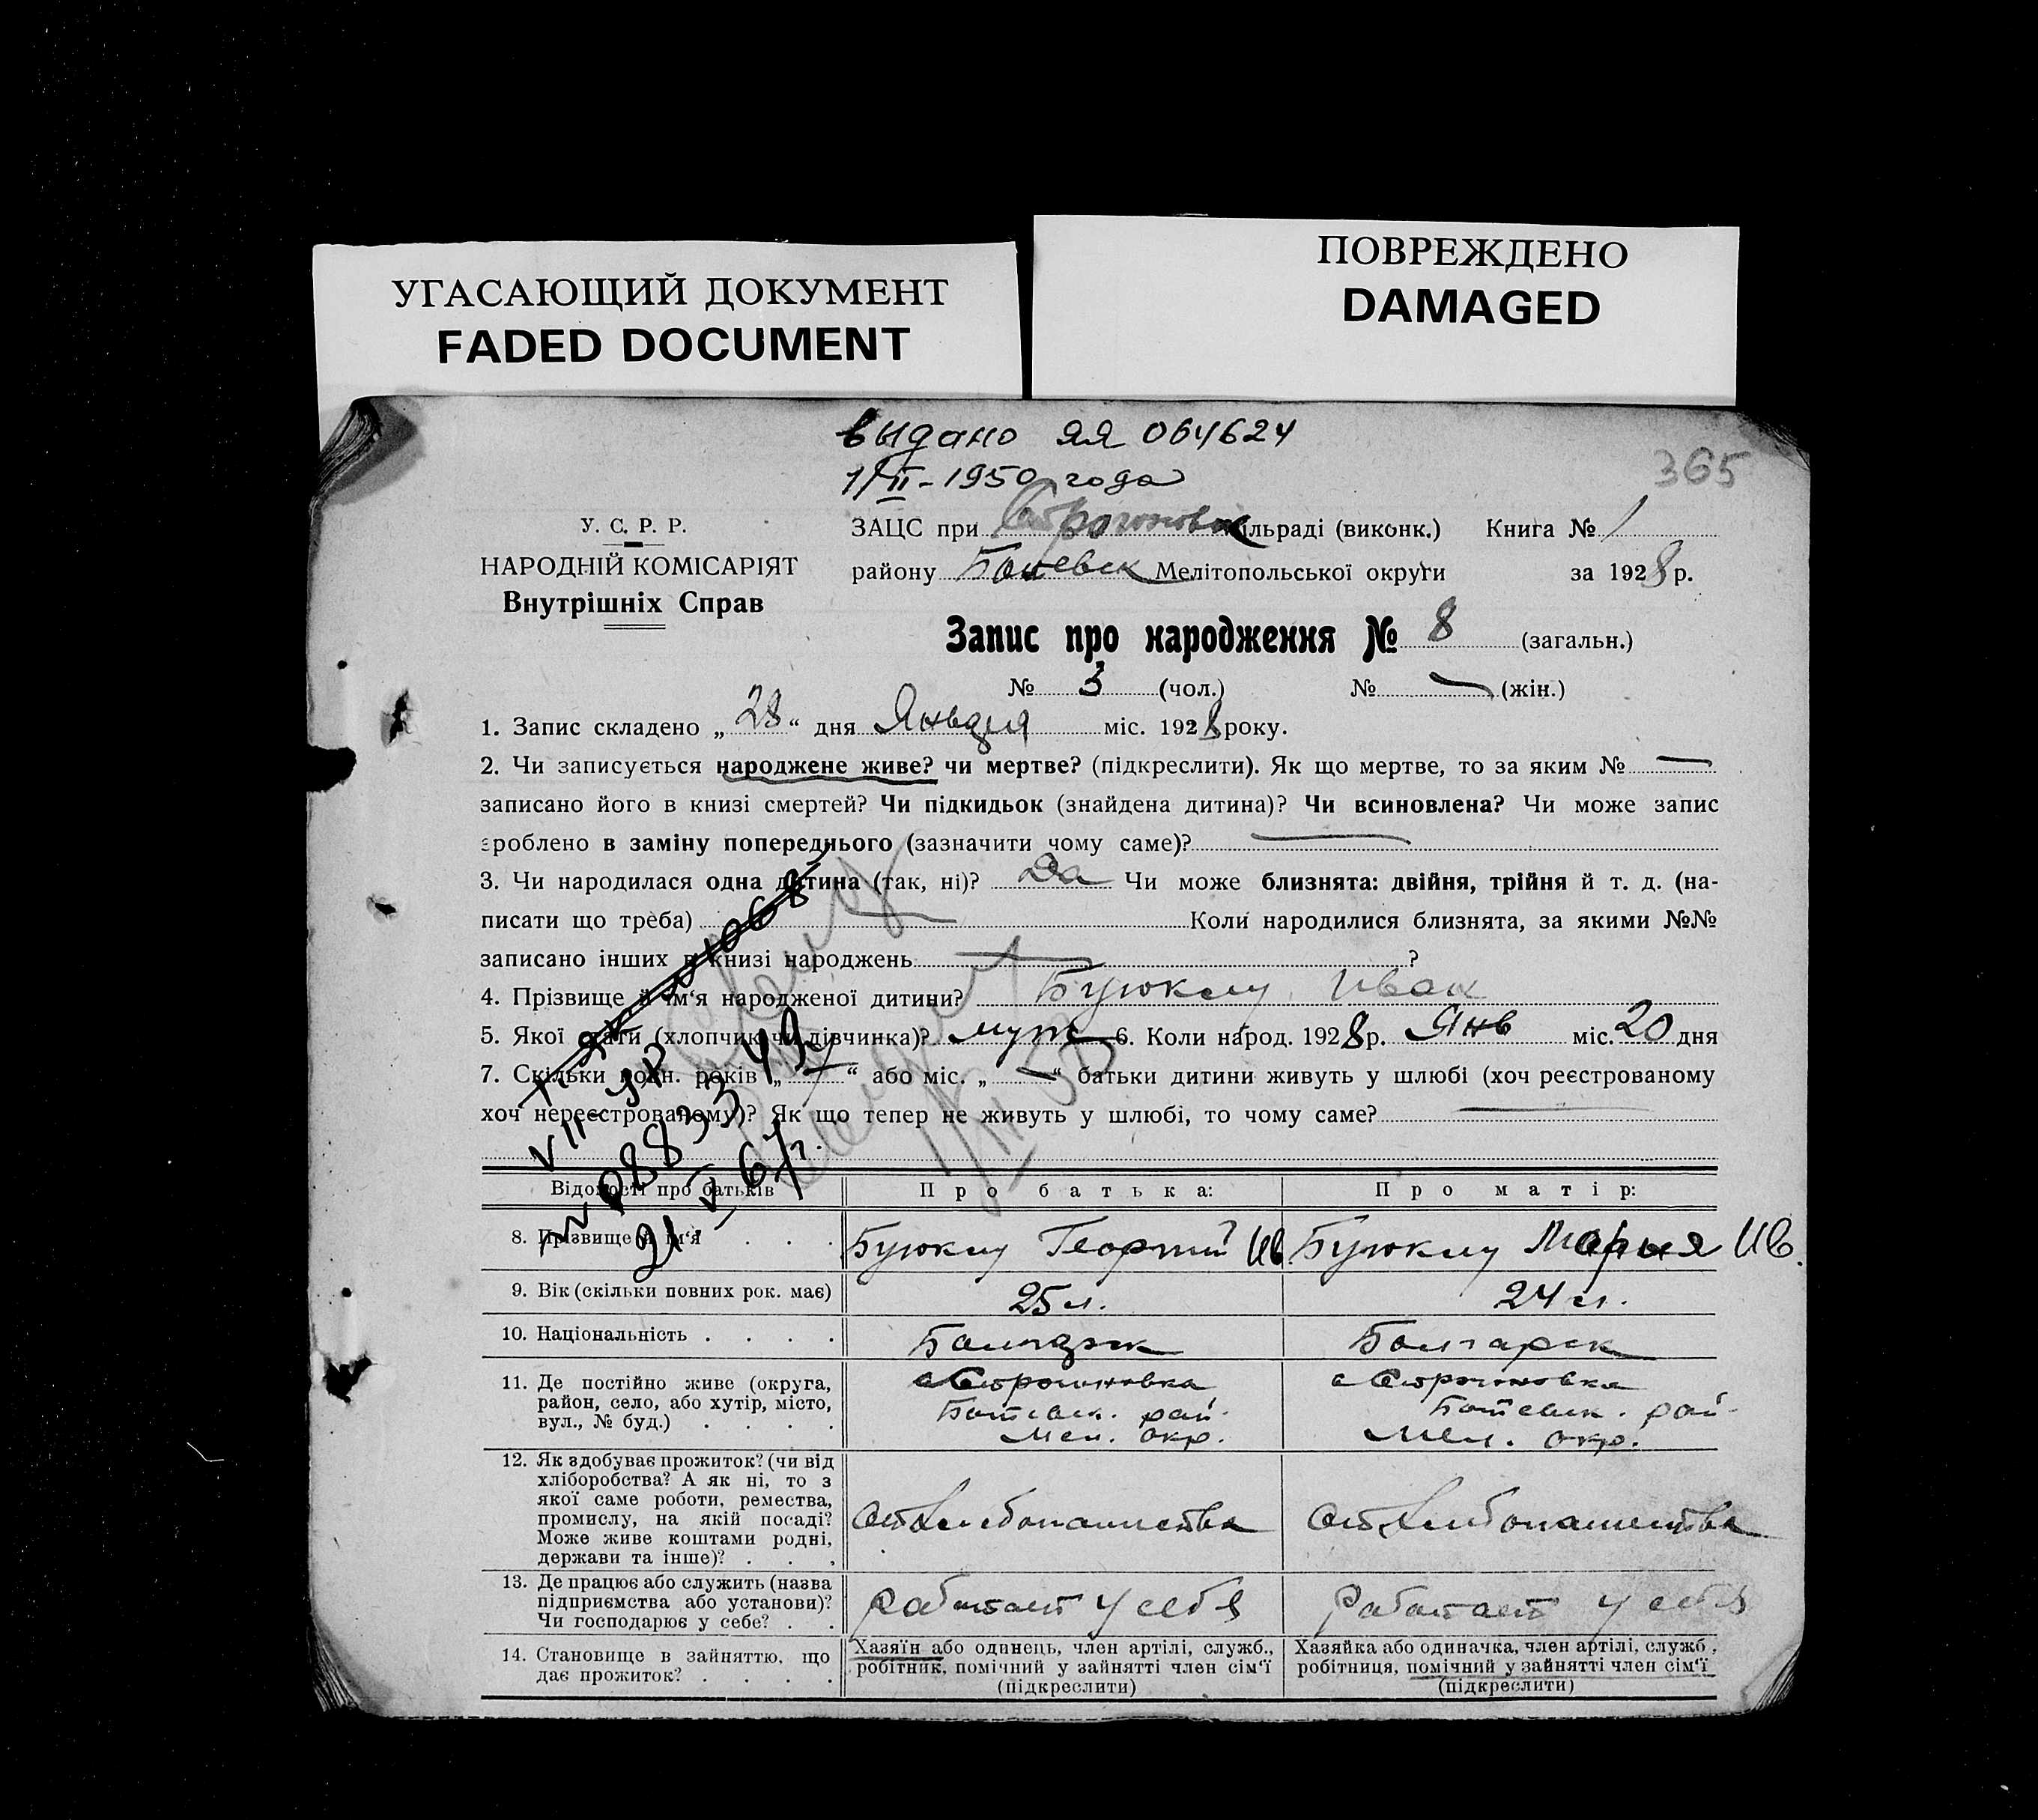 УГАСАЮЩИЙ ДОКУМЕНТ
FADED DOCUMENT
ПОВРЕЖДЕНО
DAMAGED
выдано яя 064624
1/II-1950 года
365
У. С. Р. Р.
НАРОДНІЙ КОМІСАРІЯТ
Внутрішніх Справ
ЗАЦС при Строгоновск ільраді (виконк.) Книга № 1
району Мелітопольської округи за 1928 р.
Запис про народження № 8 (загальн.)
№ 3 (чол.) № — (жін.)
1. Запис складено „28“ дня Января міс. 1928 року.
2. Чи записується народжене живе? чи мертве? (підкреслити). Як що мертве, то за яким № —
записано його в книзі смертей? Чи підкидьок (знайдена дитина)? Чи всиновлена? Чи може запис
зроблено в заміну попереднього (зазначити чому саме)? —
3. Чи народилася одна дитина (так, ні)? Да Чи може близнята: двійня, трійня й т. д. (на-
писати що треба) — Коли народилися близнята, за якими №№
записано інших в книзі народжень — ?
4. Прізвище й ім‘я народженої дитини? Буюклу Иван
5. Якої стати (хлопчик чи дівчинка)? муж 6. Коли народ. 1928 р. Янв міс. 20 дня
7. Скільки повн. років „ “ або міс. „—“ батьки дитини живуть у шлюбі (хоч реєстрованому
хоч нереєстрованому)? Як що тепер не живуть у шлюбі, то чому саме? —
Відомості про батьків Про батька: Про матір:
8. Прізвище й ім‘я . . . Буюклу Георгий Ив. Буюклу Мария Ив.
9. Вік (скільки повних рок. має) 25 л. 24 л.
10. Національність . . . . Болгарск Болгарск
11. Де постійно живе (округа, район, село, або хутір, місто, вул., № буд.) . . . .
с Строгоновка
Ботевск. рай.
Мел. окр.
с Строгоновка
Ботевск. рай.
Мел. окр.
12. Як здобуває прожиток? (чи від хліборобства? А як ні, то з якої саме роботи, ремества, промислу, на якій посаді? Може живе коштами родні, держави та інше)? . . .
от Хлебопашества
от Хлебопашества
13. Де працює або служить (назва підприємства або установи)? Чи господарює у себе? . .
работает у себя
Работает у себя
14. Становище в зайняттю, що дає прожиток? . . . .
Хазяїн або одинець, член артілі, служб.,
робітник, помічний у зайнятті член сім‘ї
(підкреслити)
Хазяйка або одиначка, член артілі, служб.,
робітниця, помічний у зайнятті член сім‘ї
(підкреслити)